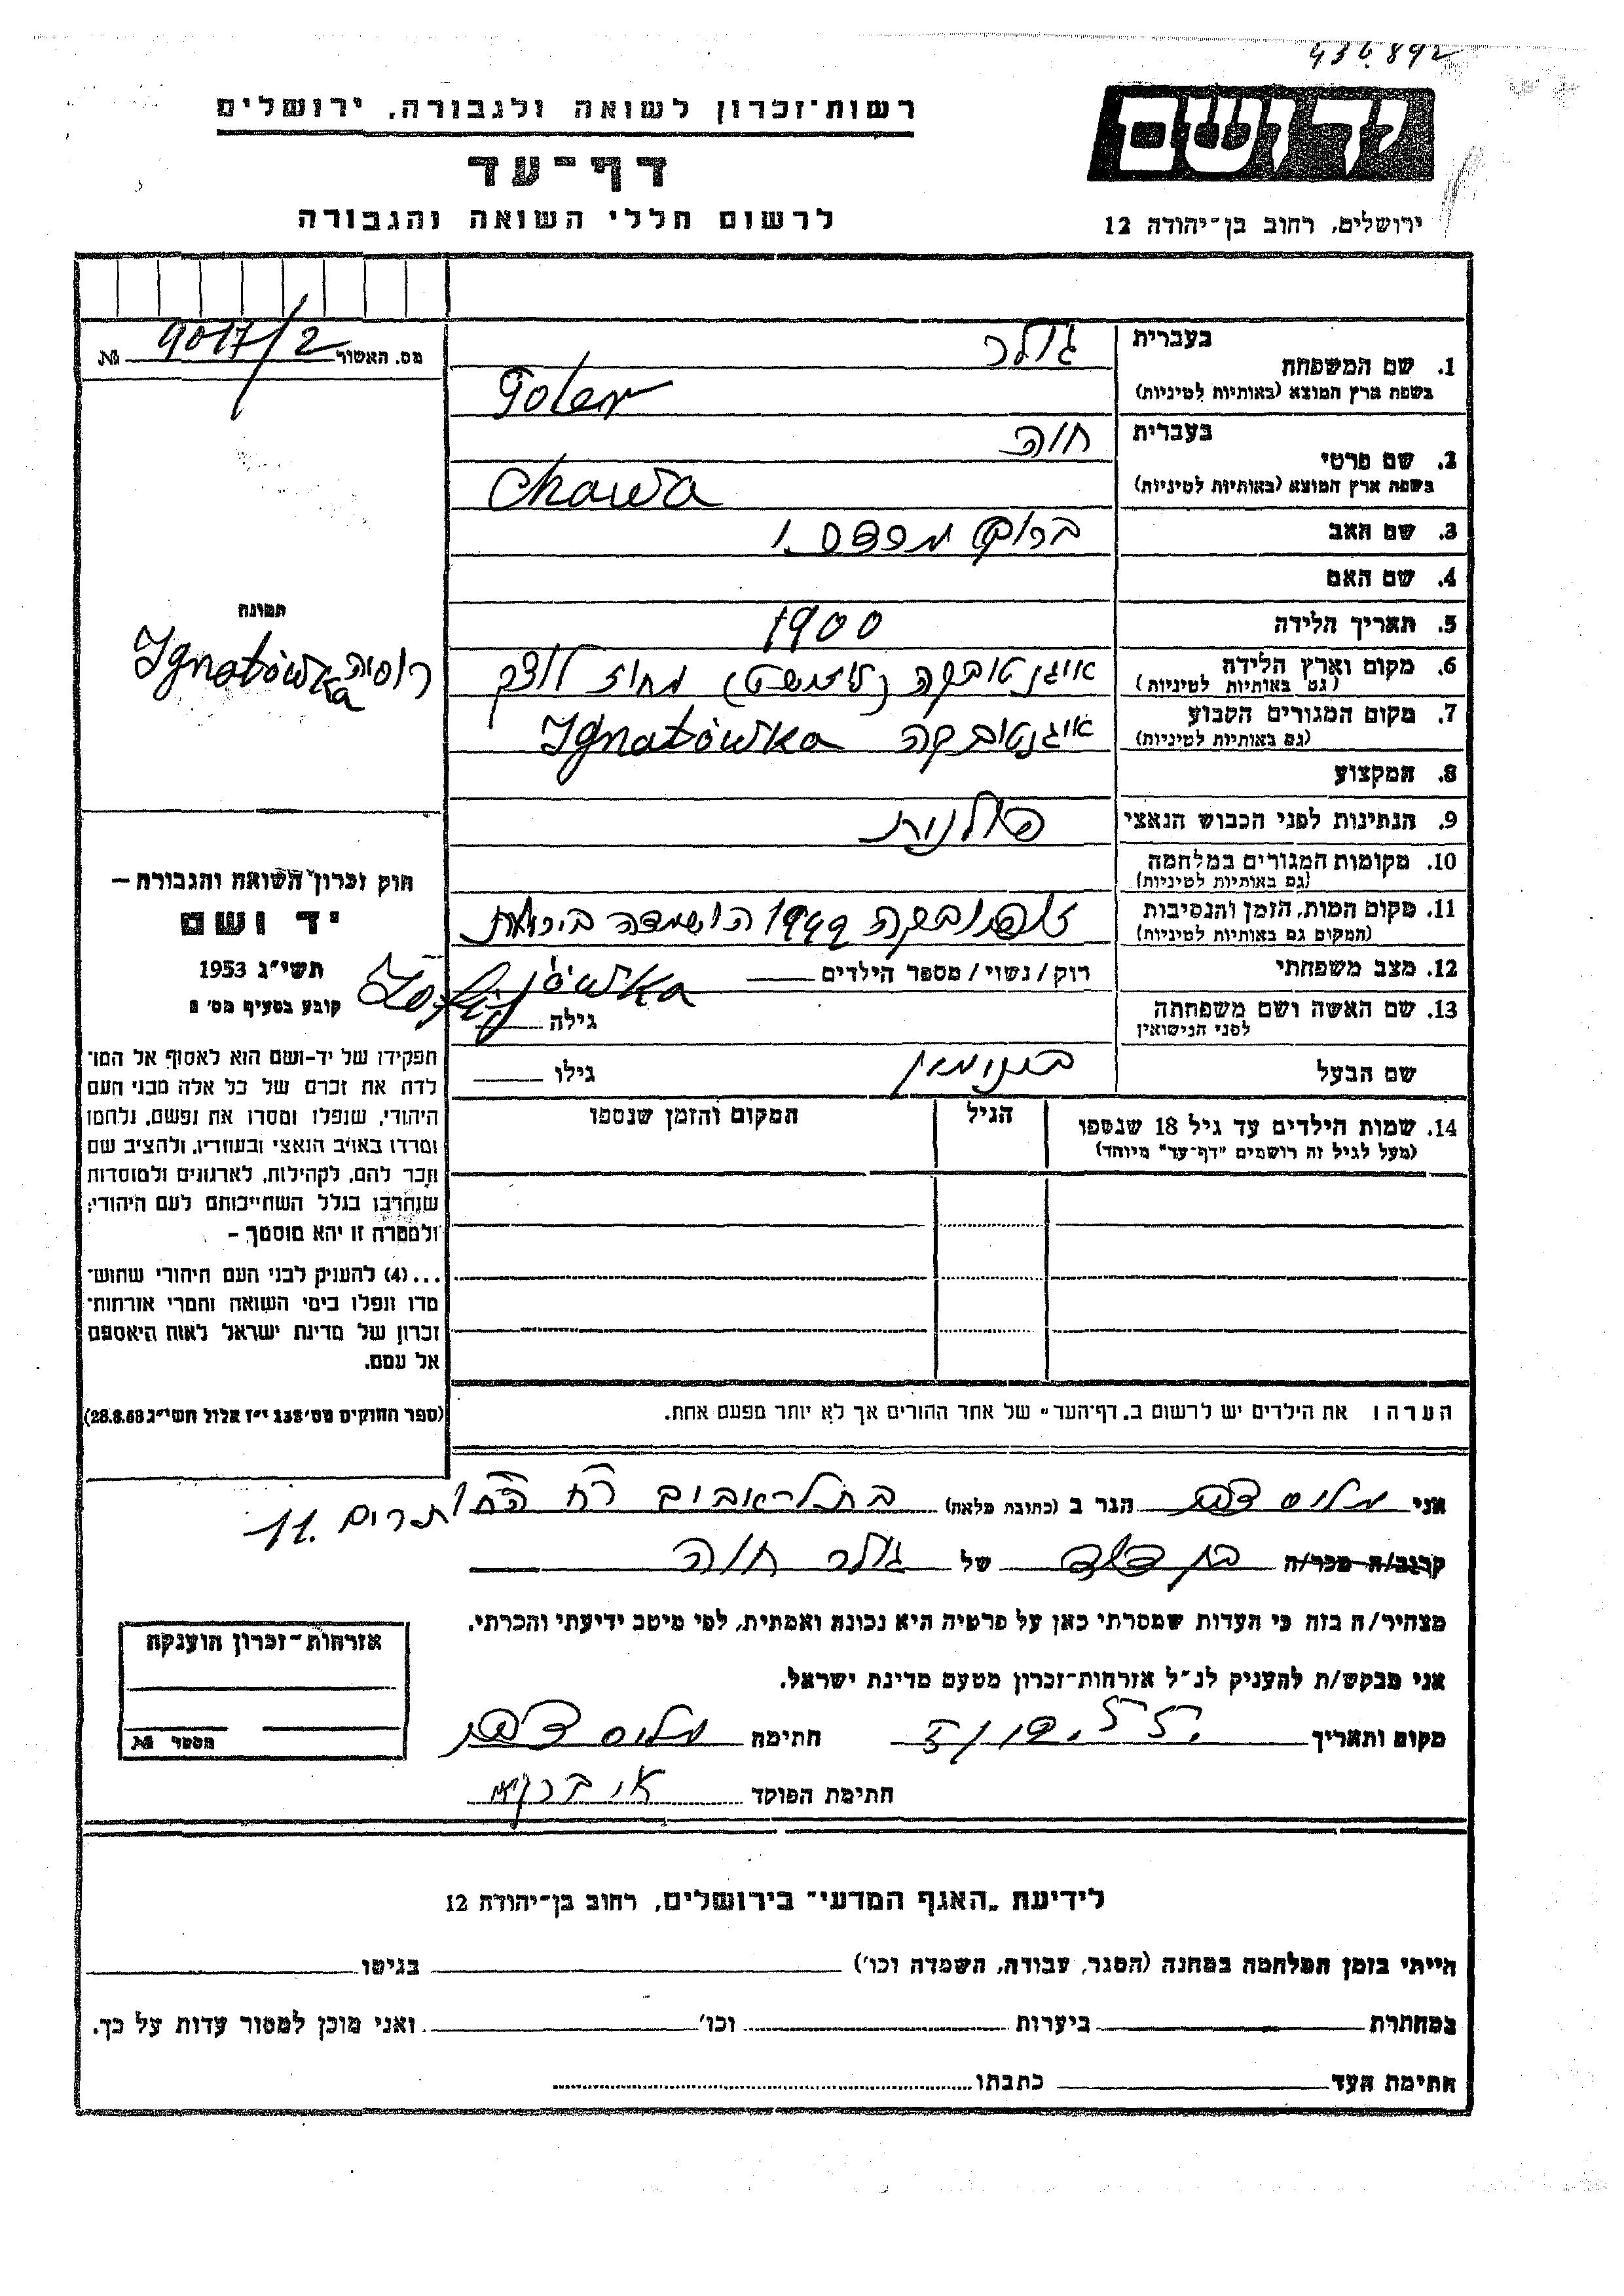 436.892
יד ושם
רשות־זכרון לשואה ולגבורה, ירושלים
דף־עד
לרשום חללי השואה והגבורה
ירושלים, רחוב בן־יהודה 12
מס. האשור 9017/2 №
1. שם המשפחה
בעברית גולר
בשפת ארץ המוצא (באותיות לטיניות) Goler
2. שם פרטי
בעברית חוה
בשפת ארץ המוצא (באותיות לטיניות) Chawa
3. שם האב ברוך
4. שם האם
5. תאריך הלידה 1900
6. מקום וארץ הלידה
(גם באותיות לטיניות) איגנטובקה מחוז לוצק
רוסיה Ignatówka
7. מקום המגורים הקבוע
(גם באותיות לטיניות) איגנטובקה Ignatówka
8. המקצוע
9. הנתינות לפני הכבוש הנאצי פולנית
10. מקומות המגורים במלחמה
(גם באותיות לטיניות)
11. מקום המות, הזמן והנסיבות
(המקום גם באותיות לטיניות) זופיובקה 1942 הושמדה
Zofijówka
12. מצב משפחתי רוק / נשוי / מספר הילדים
13. שם האשה ושם משפחתה
לפני הנישואין
גילה
שם הבעל
גילו
14. שמות הילדים עד גיל 18 שנספו
(מעל לגיל זה רושמים "דף־עד" מיוחד)
הגיל
המקום והזמן שנספו
תמונה
חוק זכרון השואה והגבורה —
יד ושם
תשי״ג 1953
קובע בסעיף מס׳ 2
תפקידו של יד-ושם הוא לאסוף אל המו־
לדת את זכרם של כל אלה מבני העם
היהודי, שנפלו ומסרו את נפשם, נלחמו
ומרדו באויב הנאצי ובעוזריו, ולהציב שם
וזכר להם, לקהילות, לארגונים ולמוסדות
שנחרבו בגלל השתייכותם לעם היהודי;
ולמטרה זו יהא מוסמך —
...(4) להעניק לבני העם היהודי שהוש־
מדו ונפלו בימי השואה והמרי אזרחות־
זכרון של מדינת ישראל לאות היאספם
אל עמם.
(ספר החוקים מס׳ 132 י״ז אלול תשי״ג 28.8.53)
הערה: את הילדים יש לרשום ב„דף־העד" של אחד ההורים אך לא יותר מפעם אחת.
אני הגר ב (כתובת מלאה) בתל־אביב רח החו
תרים 11.
קרוב/ה מכר/ה בן דוד של גולר חוה
מצהיר/ה בזה כי העדות שמסרתי כאן על פרטיה היא נכונה ואמתית, לפי מיטב ידיעתי והכרתי.
אני מבקש/ת להעניק לנ״ל אזרחות־זכרון מטעם מדינת ישראל.
מקום ותאריך חתימה
חתימת הפוקד
אזרחות־זכרון הוענקה
מספר №
לידיעת „האגף המדעי" בירושלים, רחוב בן־יהודה 12
הייתי בזמן המלחמה במחנה (הסגר, עבודה, השמדה וכו׳) בגיטו
במחתרת ביערות וכו׳ ואני מוכן למסור עדות על כך.
חתימת העד כתבתו